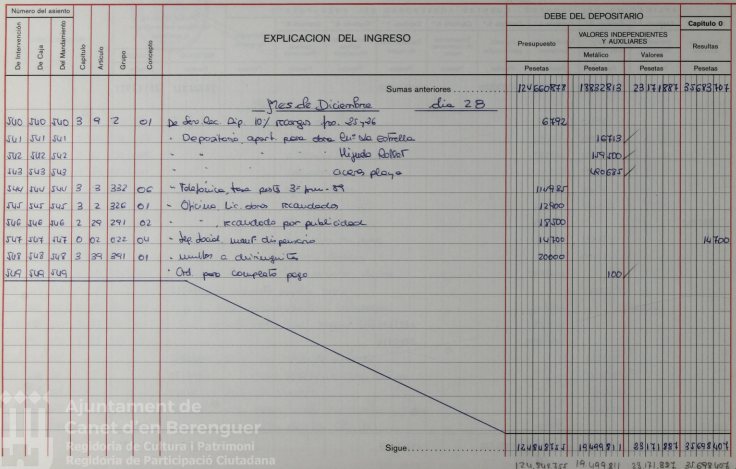 Número del asiento
De Intervención De Caja Del Mandamiento Capítulo Artículo Grupo Concepto
EXPLICACION DEL INGRESO
DEBE DEL DEPOSITARIO
Capítulo 0
Presupuesto VALORES INDEPENDIENTES Y AUXILIARES Resultas
Metálico Valores
Pesetas Pesetas Pesetas Pesetas
Sumas anteriores 124660878 18832813 23171887 35683707
Mes de Diciembre dia 28
540 540 540 3 9 2 01 De Serv. Rec. Dip. 10% recargos 6792
541 541 541 " Depositario, apart. para obra Estrella 16713
542 542 542 " " " 159500
543 543 543 " " " acera playa 490685
544 544 544 3 3 332 06 " Telefónica, tasa 3º 89 114985
545 545 545 3 2 326 01 " Oficina, Lic. obras recaudadas 12900
546 546 546 2 29 291 02 " " , recaudado por publicidad 18500
547 547 547 0 02 022 04 " Seg. Social 14700 14700
548 548 548 3 39 391 01 " multas a 20000
549 549 549 " Ord. para completo pago 100
Sigue 124848755 19499811 23171887 35698407
124.848.755 19.499.811 23.171.887 35.698.407
Ajuntament de
Canet d'en Berenguer
Regidoria de Cultura i Patrimoni
Regidoria de Participació Ciutadana